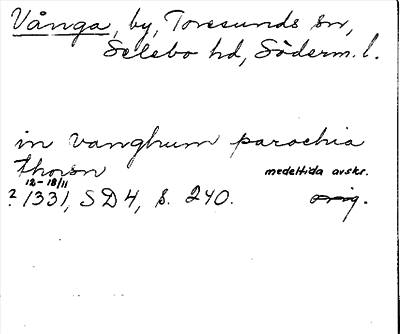 Vånga, by, Toresunds sn,
Selebo hd, Söderm. l.
in vanghum parochia
thorsn medeltida avskr.
12-18/11
? 1331, SD 4, s. 240. orig.